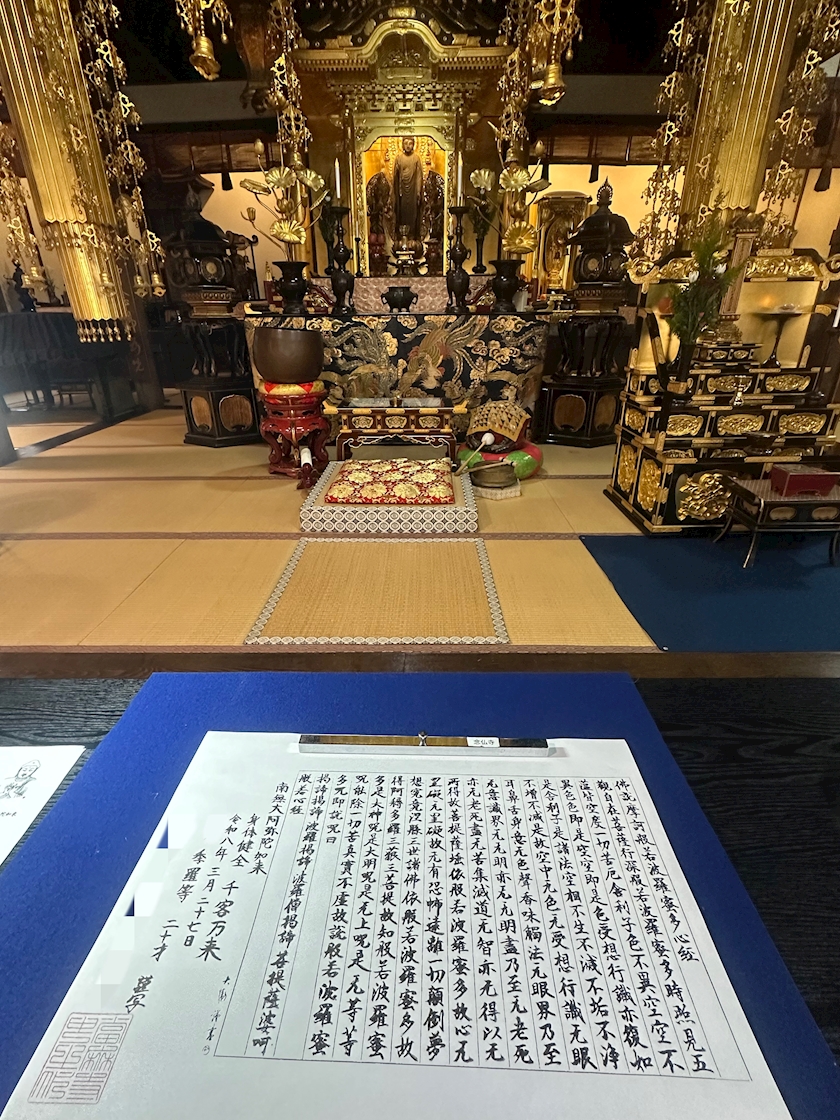 念仏寺
佛説摩訶般若波羅蜜多心経
観自在菩薩行深般若波羅蜜多時照見五
蘊皆空度一切苦厄舎利子色不異空空不
異色色即是空空即是色受想行識亦復如
是舎利子是諸法空相不生不滅不垢不浄
不増不減是故空中无色无受想行識无眼
耳鼻舌身意无色聲香味觸法无眼界乃至
无意識界无无明亦无无明盡乃至无老死
亦无老死盡无苦集滅道无智亦无得以无
所得故菩提薩埵依般若波羅蜜多故心无
罣礙无罣礙故无有恐怖遠離一切顛倒夢
想究竟涅槃三世諸佛依般若波羅蜜多故
得阿耨多羅三藐三菩提故知般若波羅蜜
多是大神呪是大明呪是无上呪是无等等
呪能除一切苦真實不虚故説般若波羅蜜
多呪即説呪曰
揭諦揭諦 波羅揭諦 波羅僧揭諦 菩提薩婆呵
般若心経
南無大阿弥陀如来
身体健全 千客万来
令和八年 三月二十七日
二十才 謹写